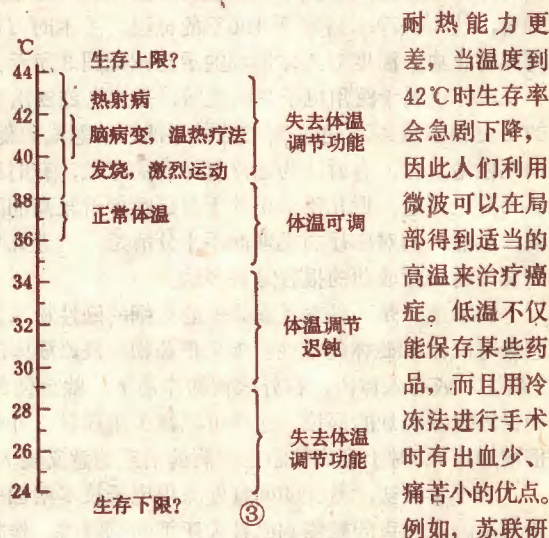 ℃
44
42
40
38
36
34
32
30
28
26
24
生存上限?
热射病
脑病变，温热疗法
发烧，激烈运动
正常体温
生存下限?
失去体温
调节功能
体温可调
体温调节
迟钝
失去体温
调节功能
③
耐热能力更
差，当温度到
42℃时生存率
会急剧下降，
因此人们利用
微波可以在局
部得到适当的
高温来治疗癌
症。低温不仅
能保存某些药
品，而且用冷
冻法进行手术
时有出血少、
痛苦小的优点。
例如，苏联研